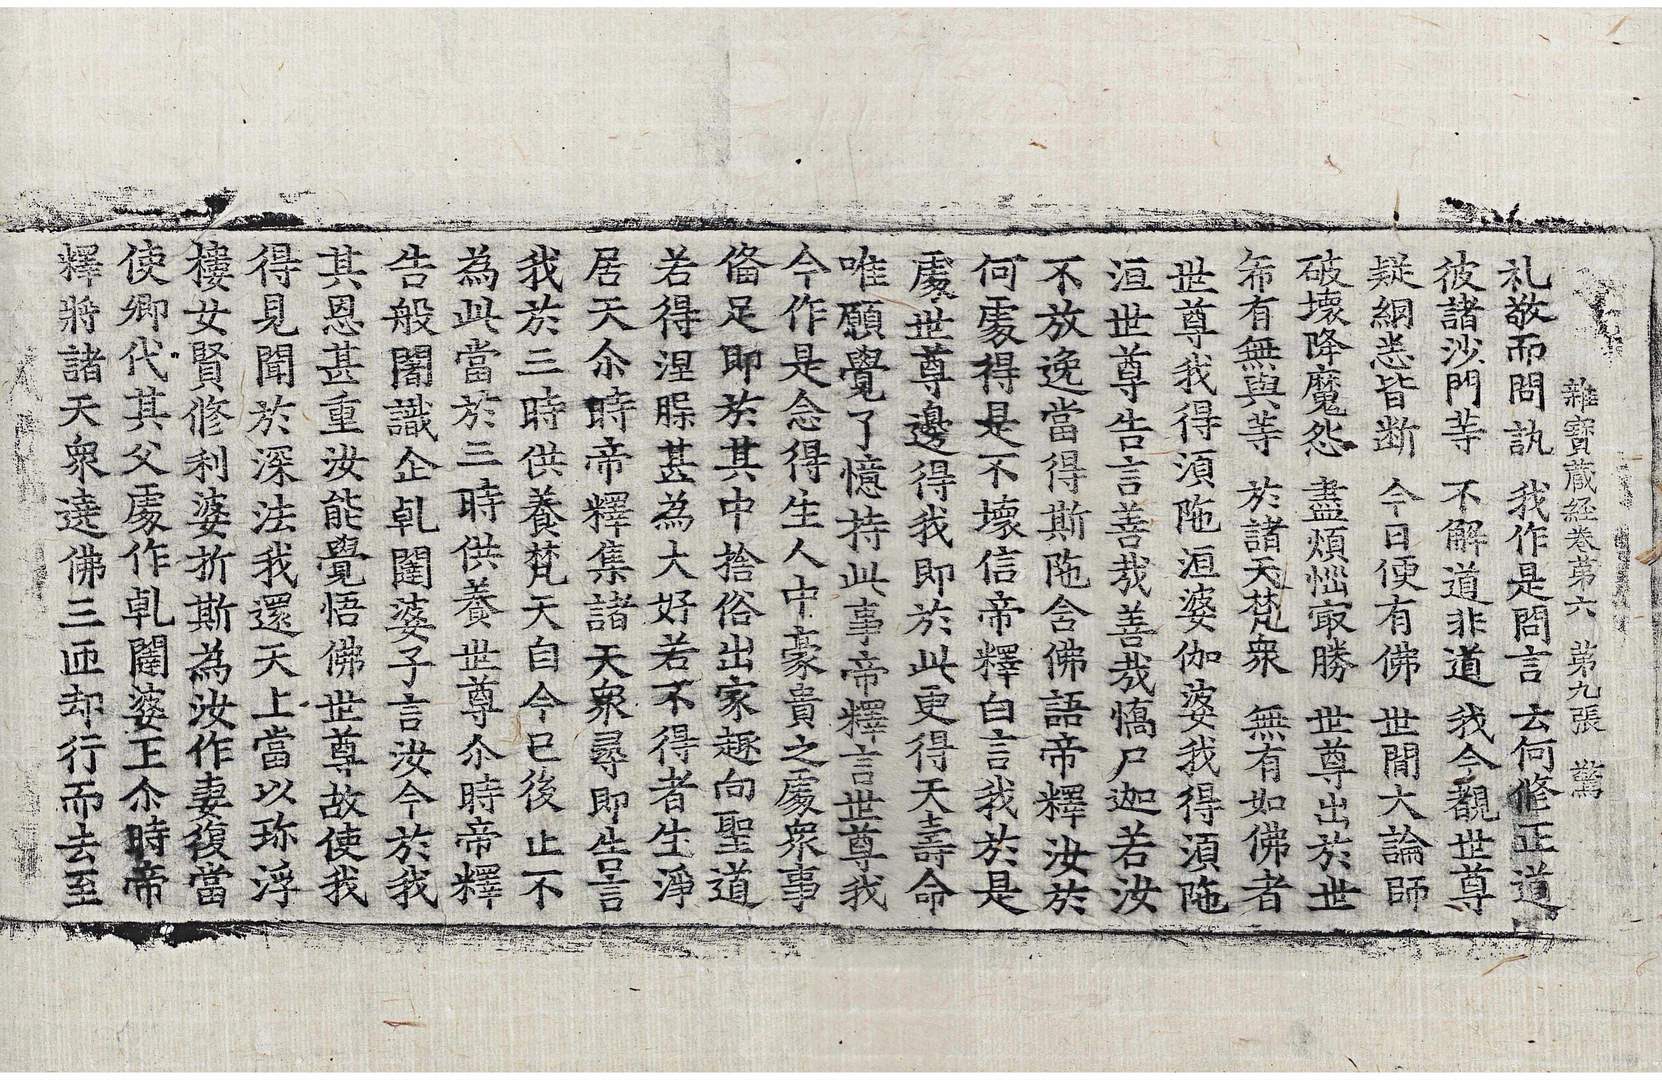 雜寶藏経卷第六　第九張　驚
礼敬而問訊　我作是問言　云何修正道
彼諸沙門等　不解道非道　我今覩世尊
疑網悉皆断　今日便有佛　世間大論師
破壞降魔怨　盡煩惱㝡勝　世尊出於世
希有無與等　於諸天梵衆　無有如佛者
世尊我得湏陁洹婆伽婆我得湏陁
洹世尊告言善㢤善㢤憍尸迦若汝
不放逸當得斯陁含佛語帝釋汝於
何處得是不壞信帝釋白言我於是
處世尊邊得我即於此更得天壽命
唯願覺了憶持此事帝釋言世尊我
今作是念得生人中豪貴之處衆事
俻足即於其中捨俗出家趣向聖道
若得涅縣甚為大好若不得者生淨
居天尒時帝釋集諸天衆尋即告言
我於三時供養梵天自今已後止不
為此當於三時供養世尊尒時帝釋
告般闍識企乹闥婆子言汝今於我
其恩甚重汝能覺悟佛世尊故使我
得見聞於深法我還天上當以珎浮
樓女賢修利婆折斯為汝作妻復當
使卿代其父處作乹闥婆王尒時帝
釋將諸天衆遶佛三匝却行而去至